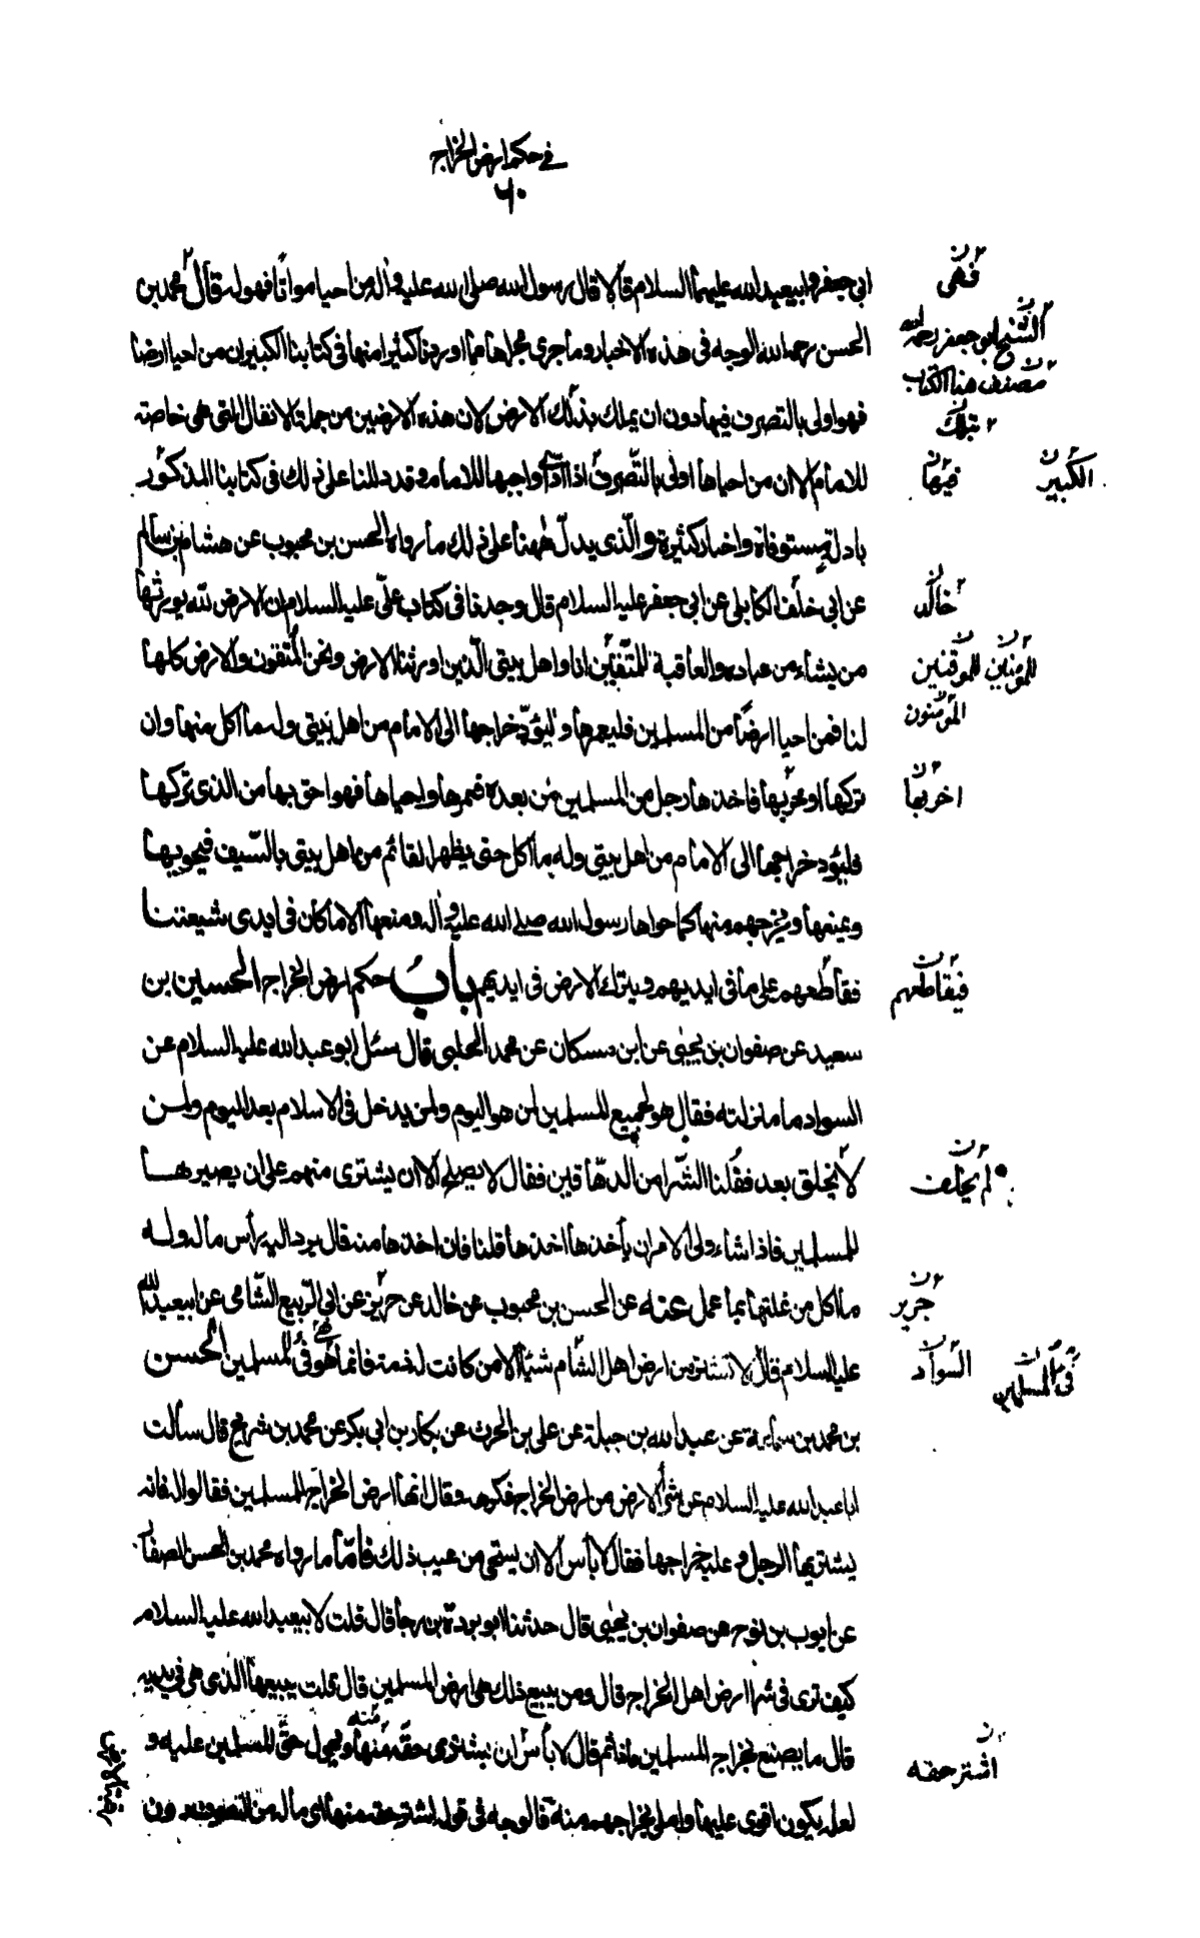 في حكم ارض الخراج
٦٠
ابي جعفر وابيعبد الله عليهما السلام قالا قال رسول الله صلى الله عليه واله من احيا مواتا فهو له قال محمد بن
الحسن رحمه الله الوجه فى هذه الاخبار وما جرى مجراها مما اوردنا كثيرا منها فى كتابنا الكبير ان من احيا ارضا
فهو اولى بالتصرف فيها دون ان يملك بذلك الارض لان هذه الارضين من جملة الانفال التى هى خاصة
للامام الا ان من احياها اولى بالتصرف اذا ادى واجبها للامام وقد دللنا على ذلك فى كتابنا المذكور
بادلة مستوفاة واخبار كثيرة والذى يدل ههنا على ذلك ما رواه الحسن بن محبوب عن هشام بن سالم
عن ابى خلف الكابلى عن ابى جعفر عليه السلام قال وجدنا فى كتاب على عليه السلام ان الارض لله يورثها
من يشاء من عباده والعاقبة للمتقين انا واهل بيتى الذين اورثنا الارض ونحن المتقون والارض كلها
لنا فمن احيا ارضا من المسلمين فليعمرها وليؤد خراجها الى الامام من اهل بيتى وله ما اكل منها وان
تركها او خربها فاخذها رجل من المسلمين من بعده فعمرها واحياها فهو احق بها من الذى تركها
فليؤد خراجها الى الامام من اهل بيتى وله ما اكل حتى يظهر القائم من اهل بيتى بالسيف فيحويها
ويمنعها ويخرجهم منها كما حواها رسول الله صلى الله عليه واله ومنعها الا ما كان فى ايدى شيعتنا
فقاطعهم على ما فى ايديهم ويترك الارض فى ايديهم باب حكم ارض الخراج الحسين بن
سعيد عن صفوان بن يحيى عن ابن مسكان عن محمد الحلبى قال سئل ابو عبد الله عليه السلام عن
السواد ما منزلته فقال هو لجميع المسلمين لمن هو اليوم ولمن يدخل فى الاسلام بعد اليوم ولمن
لا يخلق بعد فقلنا الشرا من الدهاقين فقال لا يصلح الا ان يشترى منهم على ان يصيرها
للمسلمين فاذا شاء ولى الامر ان يأخذها اخذها قلنا فان اخذها منه قال يرد اليه رأس ماله وله
ما اكل من غلتها بما عمل عنه عن الحسن بن محبوب عن خالد عن حريز عن ابى الربيع الشامى عن ابيعبد الله
عليه السلام قال لا تشتر من ارض اهل الشام شيئا الا من كانت له ذمة فانما هو فئ للمسلمين الحسن
بن محمد بن سماعة عن عبد الله بن جبلة عن على بن الحرث عن بكار بن ابى بكر عن محمد بن شريح قال سألت
ابا عبد الله عليه السلام عن شرى الارض من ارض الخراج فكرهه وقال انما ارض الخراج للمسلمين فقالوا له فانه
يشتريها الرجل وعليه خراجها فقال لا بأس الا ان يستحى من عيب ذلك فاما ما رواه محمد بن الحسن الصفار
عن ايوب بن نوح عن صفوان بن يحيى قال حدثنا ابو بردة بن رجا قال قلت لابيعبد الله عليه السلام
كيف ترى فى شرا ارض اهل الخراج قال ومن يبيع ذلك هى ارض المسلمين قال قلت يبيعها الذى هى فى يديه
قال ما يصنع بخراج المسلمين ماذا ثم قال لا بأس ان يشترى حقه منها ويحول حق المسلمين عليه و
لعله يكون اقوى عليها واملى بخراجهم منه فالوجه فى قوله اشتر حقه منها اى ماله من التصرف دون
فهى
الشيخ ابو جعفر رحمه الله
مصنف هذا الكتاب
تملك
فيها
الكبير
خالد
للمؤمنين للموقنين
المؤمنون
اخربها
فيقاطعهم
لم يخلف
جرير
السواد
فئ للمسلمين
اشتر حقه